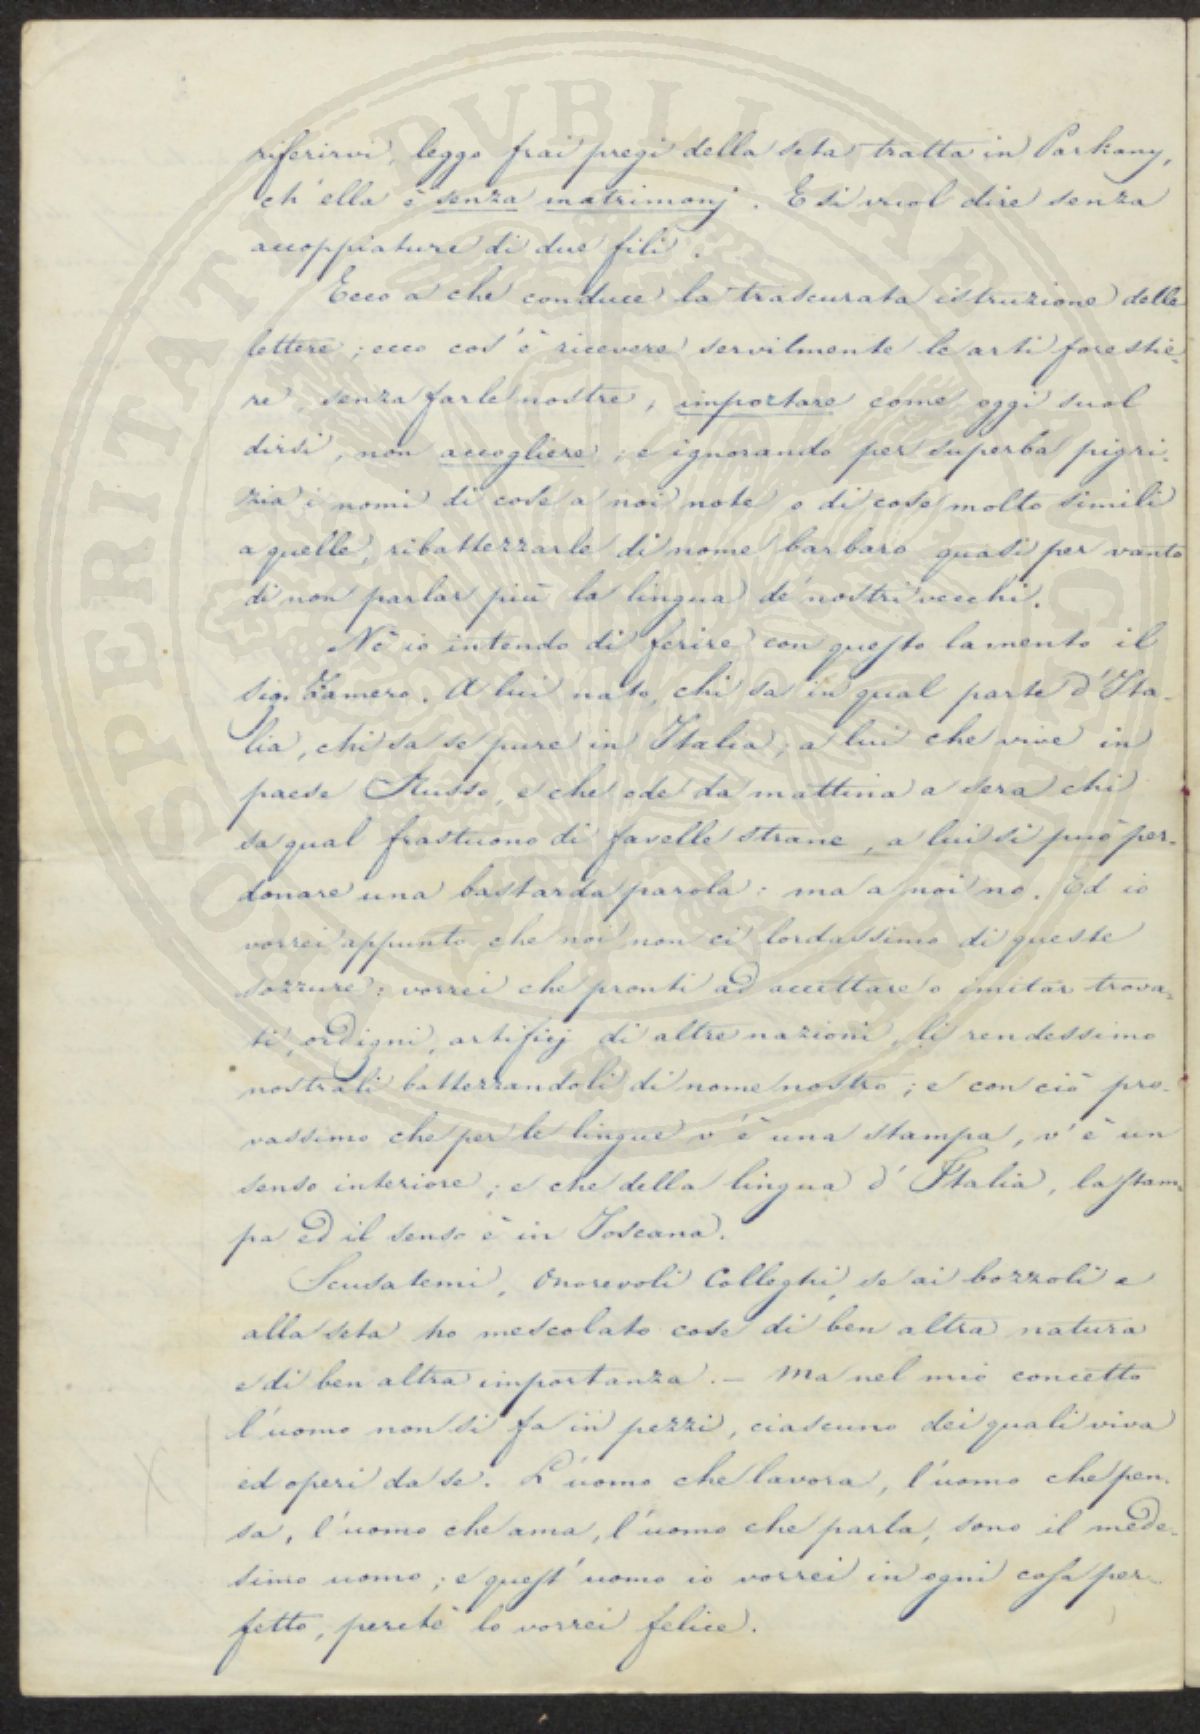 riferirvi, leggo frai pregi della seta tratta in Parkany,
ch'ella è senza matrimonj. E si vuol dire senza
accoppiature di due fili.
Ecco a che conduce la trascurata istruzione delle
lettere; ecco cos'è ricevere servilmente le arti forestie-
re, senza farle nostre, importare come oggi suol
dirsi, non accogliere; e ignorando per superba pigri-
zia i nomi di cose a noi note o di cose molto simili
a quelle, ribattezzarle di nome barbaro quasi per vanto
di non parlar più la lingua de' nostri vecchi.
Nè io intendo di ferire con questo lamento il
sig. Zamero. A lui nato, chi sa in qual parte d'Ita-
lia, chi sa se pure in Italia; a lui che vive in
paese Russo, e che ode da mattina a sera chi
sa qual frastuono di favelle strane, a lui si può per-
donare una bastarda parola: ma a noi no. Ed io
vorrei appunto che noi non ci lordassimo di queste
sozzure: vorrei che pronti ad accettare o imitar trova-
ti, ordigni, artificj di altre nazioni, li rendessimo
nostrali battezzandoli di nome nostro; e con ciò pro-
vassimo che per le lingue v'è una stampa, v'è un
senso interiore; e che della lingua d'Italia, la stam-
pa ed il senso è in Toscana.
Scusatemi, Onorevoli Colleghi, se ai bozzoli e
alla seta ho mescolato cose di ben altra natura
e di ben altra importanza. – Ma nel mio concetto
l'uomo non si fa in pezzi, ciascuno dei quali viva
ed operi da se. L'uomo che lavora, l'uomo che pen-
sa, l'uomo che ama, l'uomo che parla, sono il mede-
simo uomo; e quest'uomo io vorrei in ogni cosa per-
fetto, perchè lo vorrei felice.